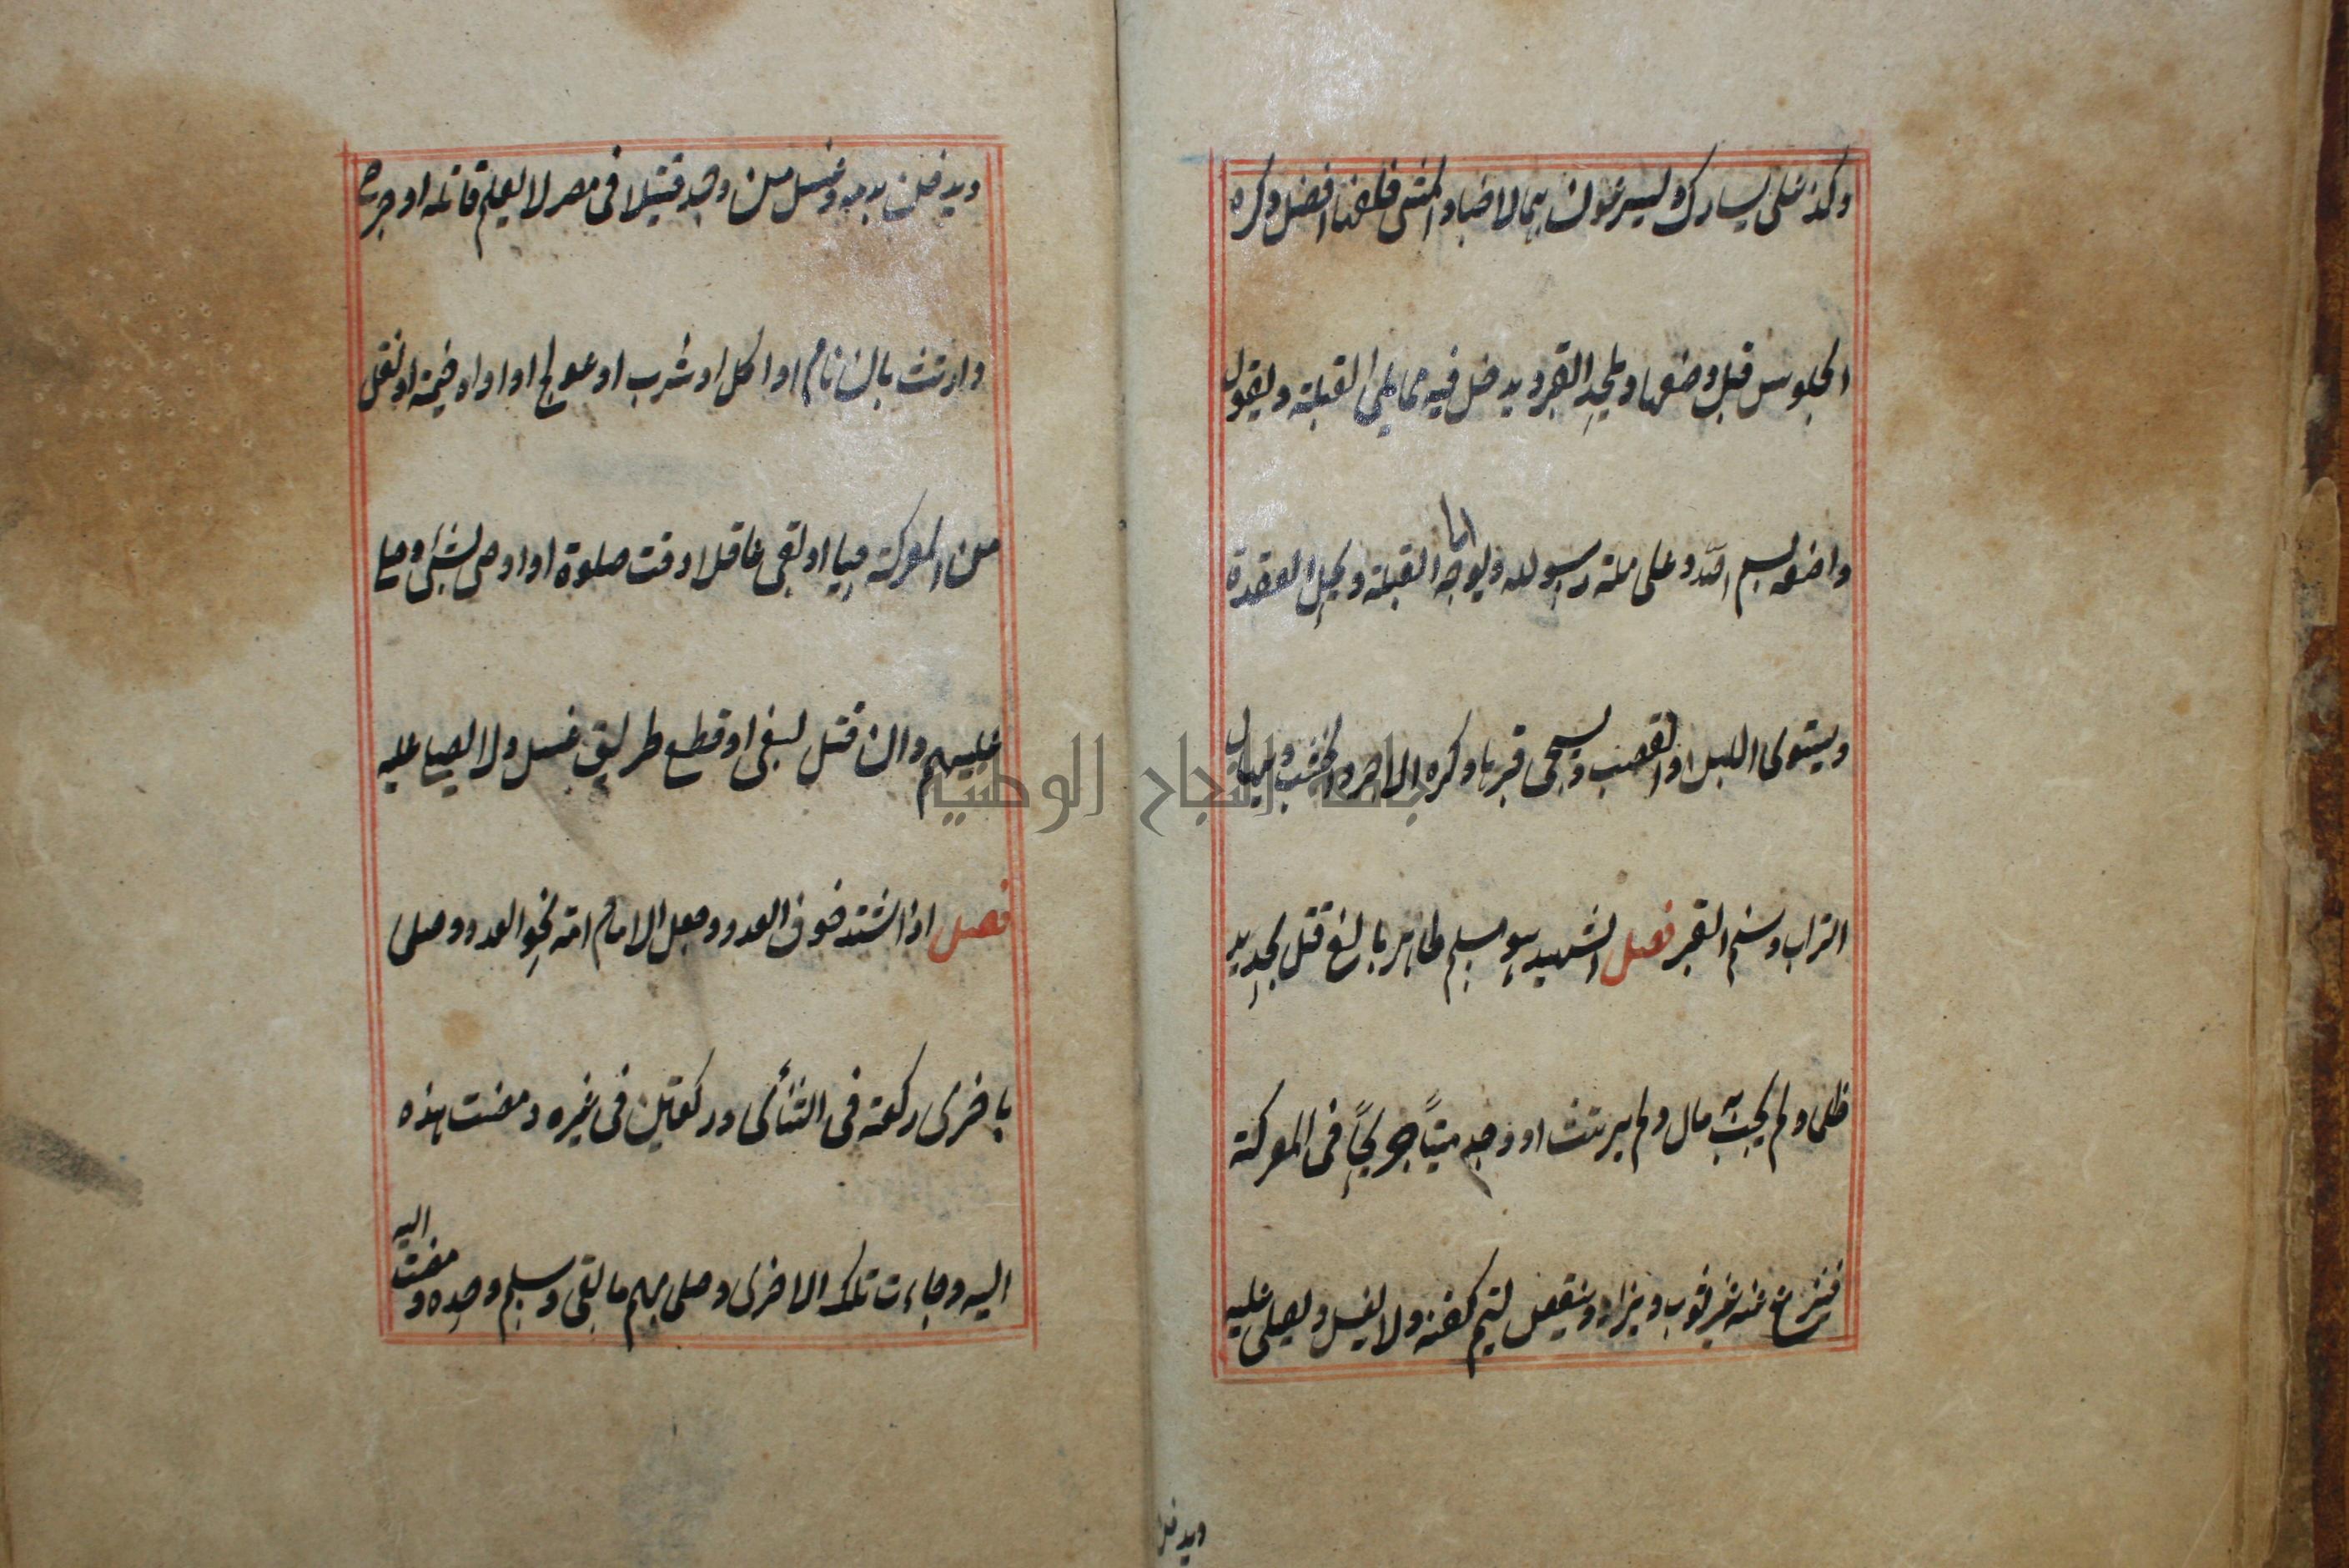 وكذا على يسارك ويسرعون بهما لا خببا والمشي خلفها افضل وكره
الجلوس قبل وضعها ويلحد القبر ويدخل فيه مما يلي القبلة ويقول
واضعه بسم الله وعلى ملة رسول الله ويوجه الى القبلة ويحل العقدة
ويستوى اللبن او القصب ويسجى قبرها وكره الاجر والخشب ويهال
التراب ويسنم القبر فصل الشهيد هو مسلم طاهر بالغ قتل بحديد
ظلما ولم يجب به مال ولم يرتث او وجد ميتاً جريحاً في المعركة
فينزع عنه غير ثوبه ويزاد وينقص ليتم كفنه ولا يغسل ويصلى عليه
ويدفن
ويدفن بدمه وغسل من وجد قتيلا في مصر لا يعلم قاتله او جرح
وارتث بان نام او اكل او شرب او عولج او اواه خيمة او نقل
من المعركة حيا او بقى عاقلا وقت صلوة او اوصى بشئ وصلى
عليهم وان قتل لبغى او قطع طريق غسل ولا يصلى عليه
فصل اذا اشتد خوف العدو وجعل الامام امة نحو العدو وصلى
باخرى ركعة في الثنائى وركعتين في غيره ومضت هذه
اليه وجاءت تلك الاخرى وصلى بهم ما بقى وسلم وحده ومضت اليه
جامعة النجاح الوطنية